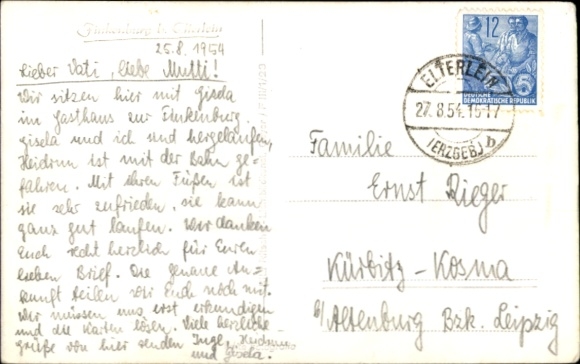 Finkenburg b. Elterlein
25.8.1954
Lieber Vati, liebe Mutti!
Wir sitzen hier mit Gisela
im Gasthaus zur Finkenburg.
Gisela und ich sind hergelaufen,
Heidrun ist mit der Bahn ge=
fahren. Mit ihren Füßen ist
sie sehr zufrieden, sie kann
ganz gut laufen. Wir danken
Euch recht herzlich für Euren
lieben Brief. Die genaue An=
kunft teilen wir Euch noch mit.
Wir müssen uns erst erkundigen
und die Karten lösen. Viele herzliche
grüße von hier senden Inge,
und Gisela.
12
5
DEUTSCHE
DEMOKRATISCHE REPUBLIK
ELTERLEIN
27.8.54.15-17
(ERZGEB.) b
Familie
Ernst Rieger
Kürbitz-Kosma
b/Altenburg Bzk. Leipzig